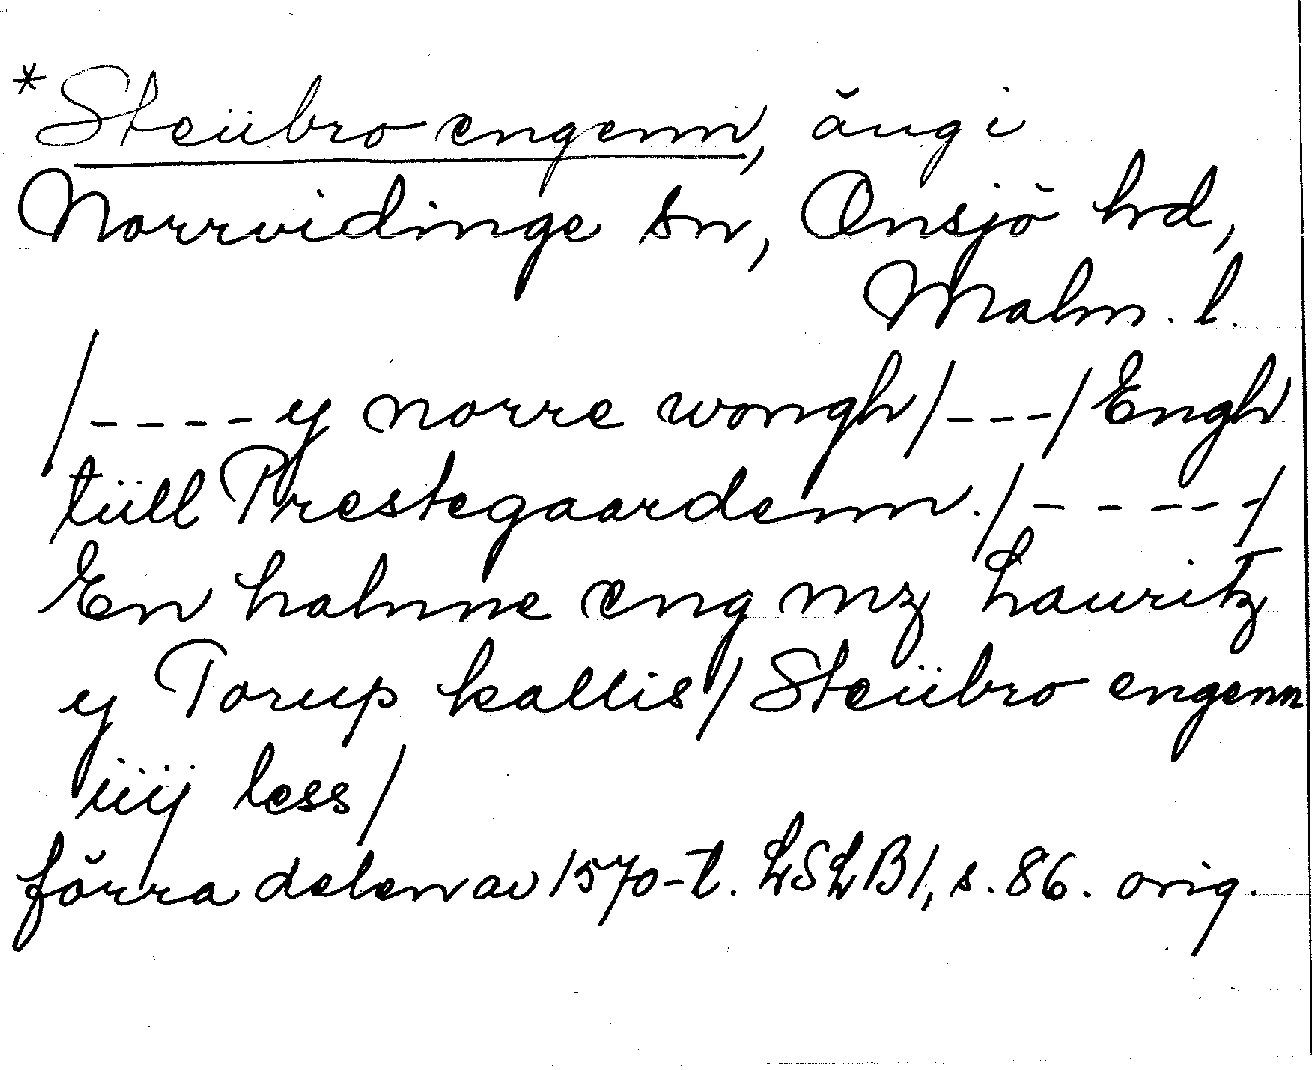 *Steübro engenn, äng i
Norrvidinge sn, Onsjö hd,
Malm. l.
/----y norre wongh/---/Engh
tüll Prestegaardenn./-----/
En halnne eng mz Lauritz
y Torup kallis/Steübro engenn
iiij less/
förra delen av 1570-t. LSLB1, s. 86. orig.